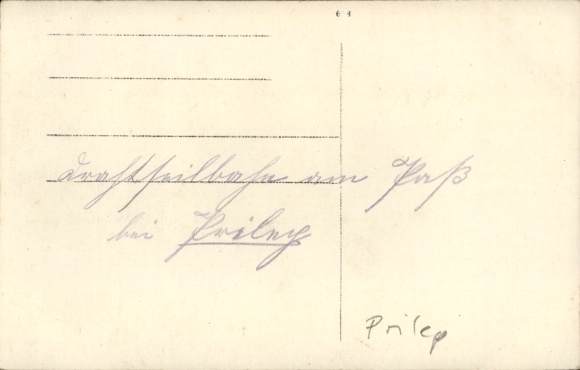 6 4
Drahtseilbahn am Paß
bei Prilep
Prilep